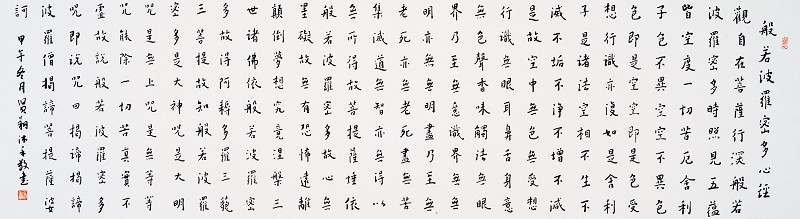 般若波羅密多心經
觀自在菩薩行深般若
波羅密多時照見五蘊
皆空度一切苦厄舍利
子色不異空空不異色
色即是空空即是色受
想行識亦復如是舍利
子是諸法空相不生不
滅不垢不淨不增不減
是故空中無色無受想
行識無眼耳鼻舌身意
無色聲香味觸法無眼
界乃至無意識界無無
明亦無無明盡乃至無
老死亦無老死盡無苦
集滅道無智亦無得以
無所得故菩提薩埵依
般若波羅密多故心無
罣礙故無有恐怖遠離
顛倒夢想究竟涅槃三
世諸佛依般若波羅密
多故得阿耨多羅三藐
三菩提故知般若波羅
密多是大神咒是大明
咒是無上咒是無等等
咒能除一切苦真實不
虛故說般若波羅密多
咒即說咒曰揭諦揭諦
波羅僧揭諦菩提薩婆
訶
甲午冬月賢翔沐手敬書